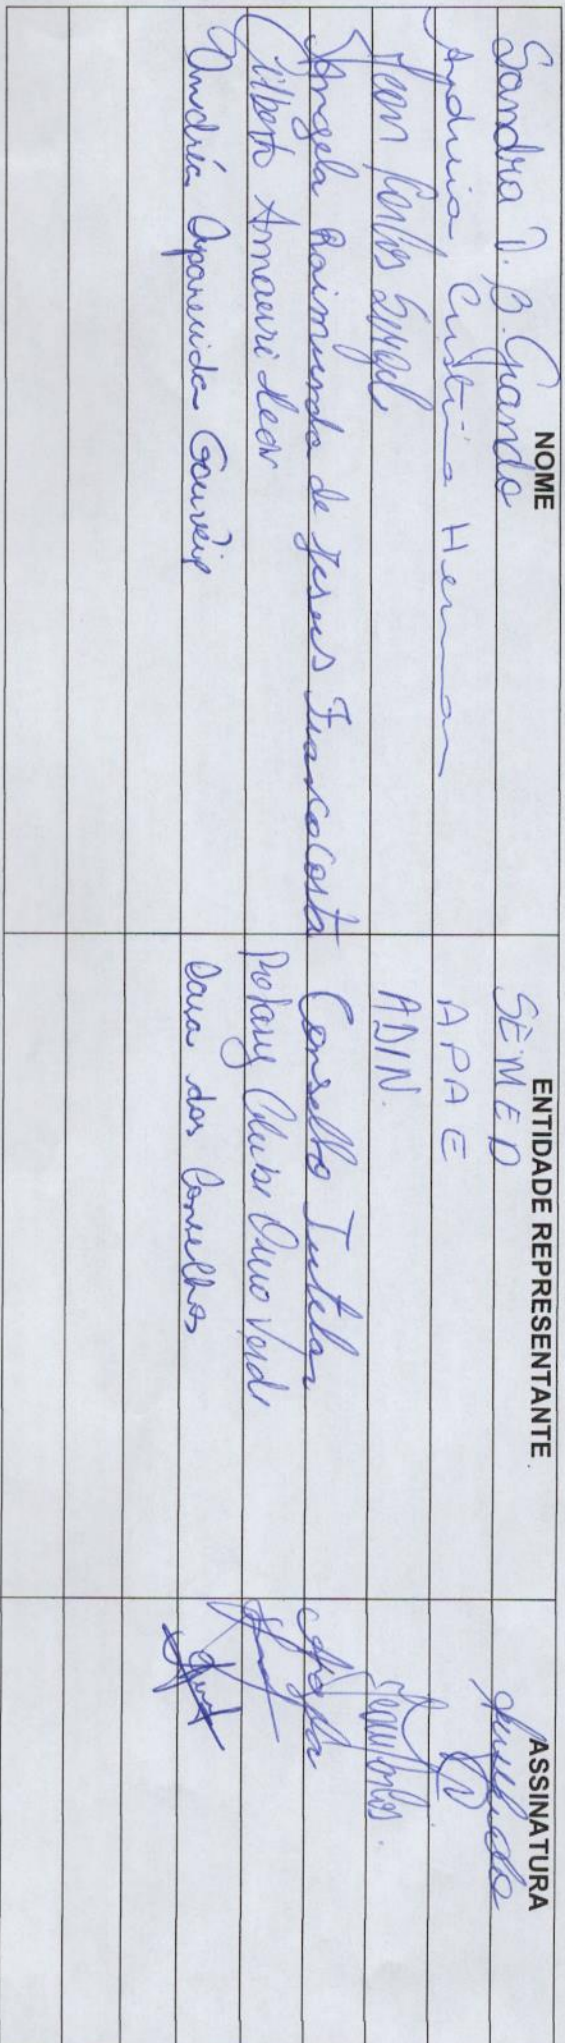 NOME ENTIDADE REPRESENTANTE. ASSINATURA
Sandra D. B. Grando SEMED
Andreia Cristina Herman APAE
Jean Carlos ADIN. Jean Carlos.
Angela Raimunda de Jesus Costa Conselho Tutelar Angela
Gilberto Amauri Rotary Clube Ouro Verde
Andréia Aparecida Gouveia Casa dos Conselhos